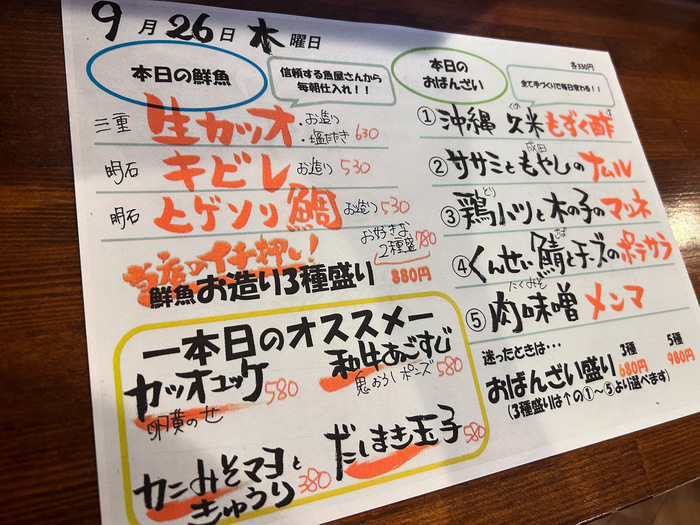 9月26日 木曜日
本日の鮮魚
信頼する魚屋さんから
毎朝仕入れ！！
三重 生カツオ ・お造り
・塩たたき 630
明石 キビレ お造り 530
明石 ヒゲソリ鯛 お造り 530
お好きな
2種盛 780
当店のイチ押し！
鮮魚お造り3種盛り 880円
ー本日のオススメー
カツオユッケ 580
卵黄のせ
和牛あごすじ
鬼おろしポン酢 580
カニみそマヨと
きゅうり 380
だしまき玉子 580
各330円
本日の
おばんざい
全て手づくりで毎日変わる！！
① 沖縄 久米もずく酢
② ササミともやしのナムル
③ 鶏ハツと木の子のマリネ
④ くんせい鯖とチーズのポテサラ
⑤ 肉味噌メンマ
迷ったときは…
おばんざい盛り
3種
680円
5種
980円
(3種盛りは↑の①～⑤より選べます)